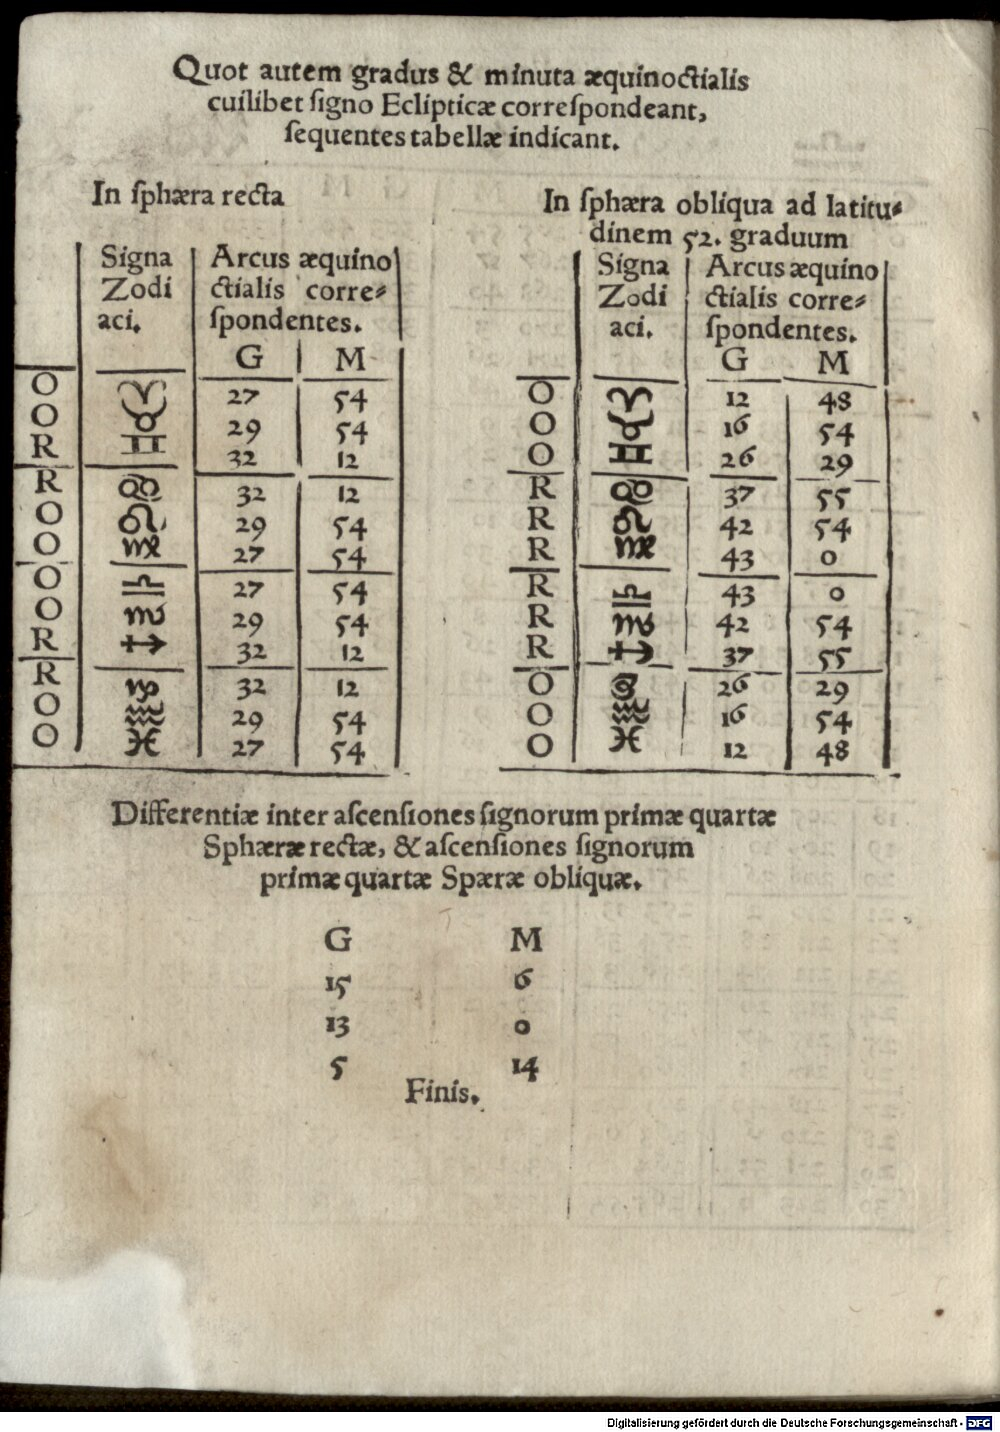 Quot autem gradus & minuta æquinoctialis
cuilibet ſigno Eclipticæ correſpondeant,
ſequentes tabellæ indicant.
In ſphæra recta
Signa Arcus æquino
Zodi ctialis corre⸗
aci. ſpondentes.
G M
O ♈ 27 54
O ♉ 29 54
R ♊ 32 12
R ♋ 32 12
O ♌ 29 54
O ♍ 27 54
O ♎ 27 54
O ♏ 29 54
R ♐ 32 12
R ♑ 32 12
O ♒ 29 54
O ♓ 27 54
In ſphæra obliqua ad latitu⸗
dinem 52. graduum
Signa Arcus æquino
Zodi ctialis corre⸗
aci. ſpondentes.
G M
O ♈ 12 48
O ♉ 16 54
O ♊ 26 29
R ♋ 37 55
R ♌ 42 54
R ♍ 43 0
R ♎ 43 0
R ♏ 42 54
R ♐ 37 55
O ♑ 26 29
O ♒ 16 54
O ♓ 12 48
Differentiæ inter aſcenſiones ſignorum primæ quartæ
Sphæræ rectæ, & aſcenſiones ſignorum
primæ quartæ Spæræ obliquæ.
G M
15 6
13 0
5 14
Finis.
Digitalisierung gefördert durch die Deutsche Forschungsgemeinschaft - DFG